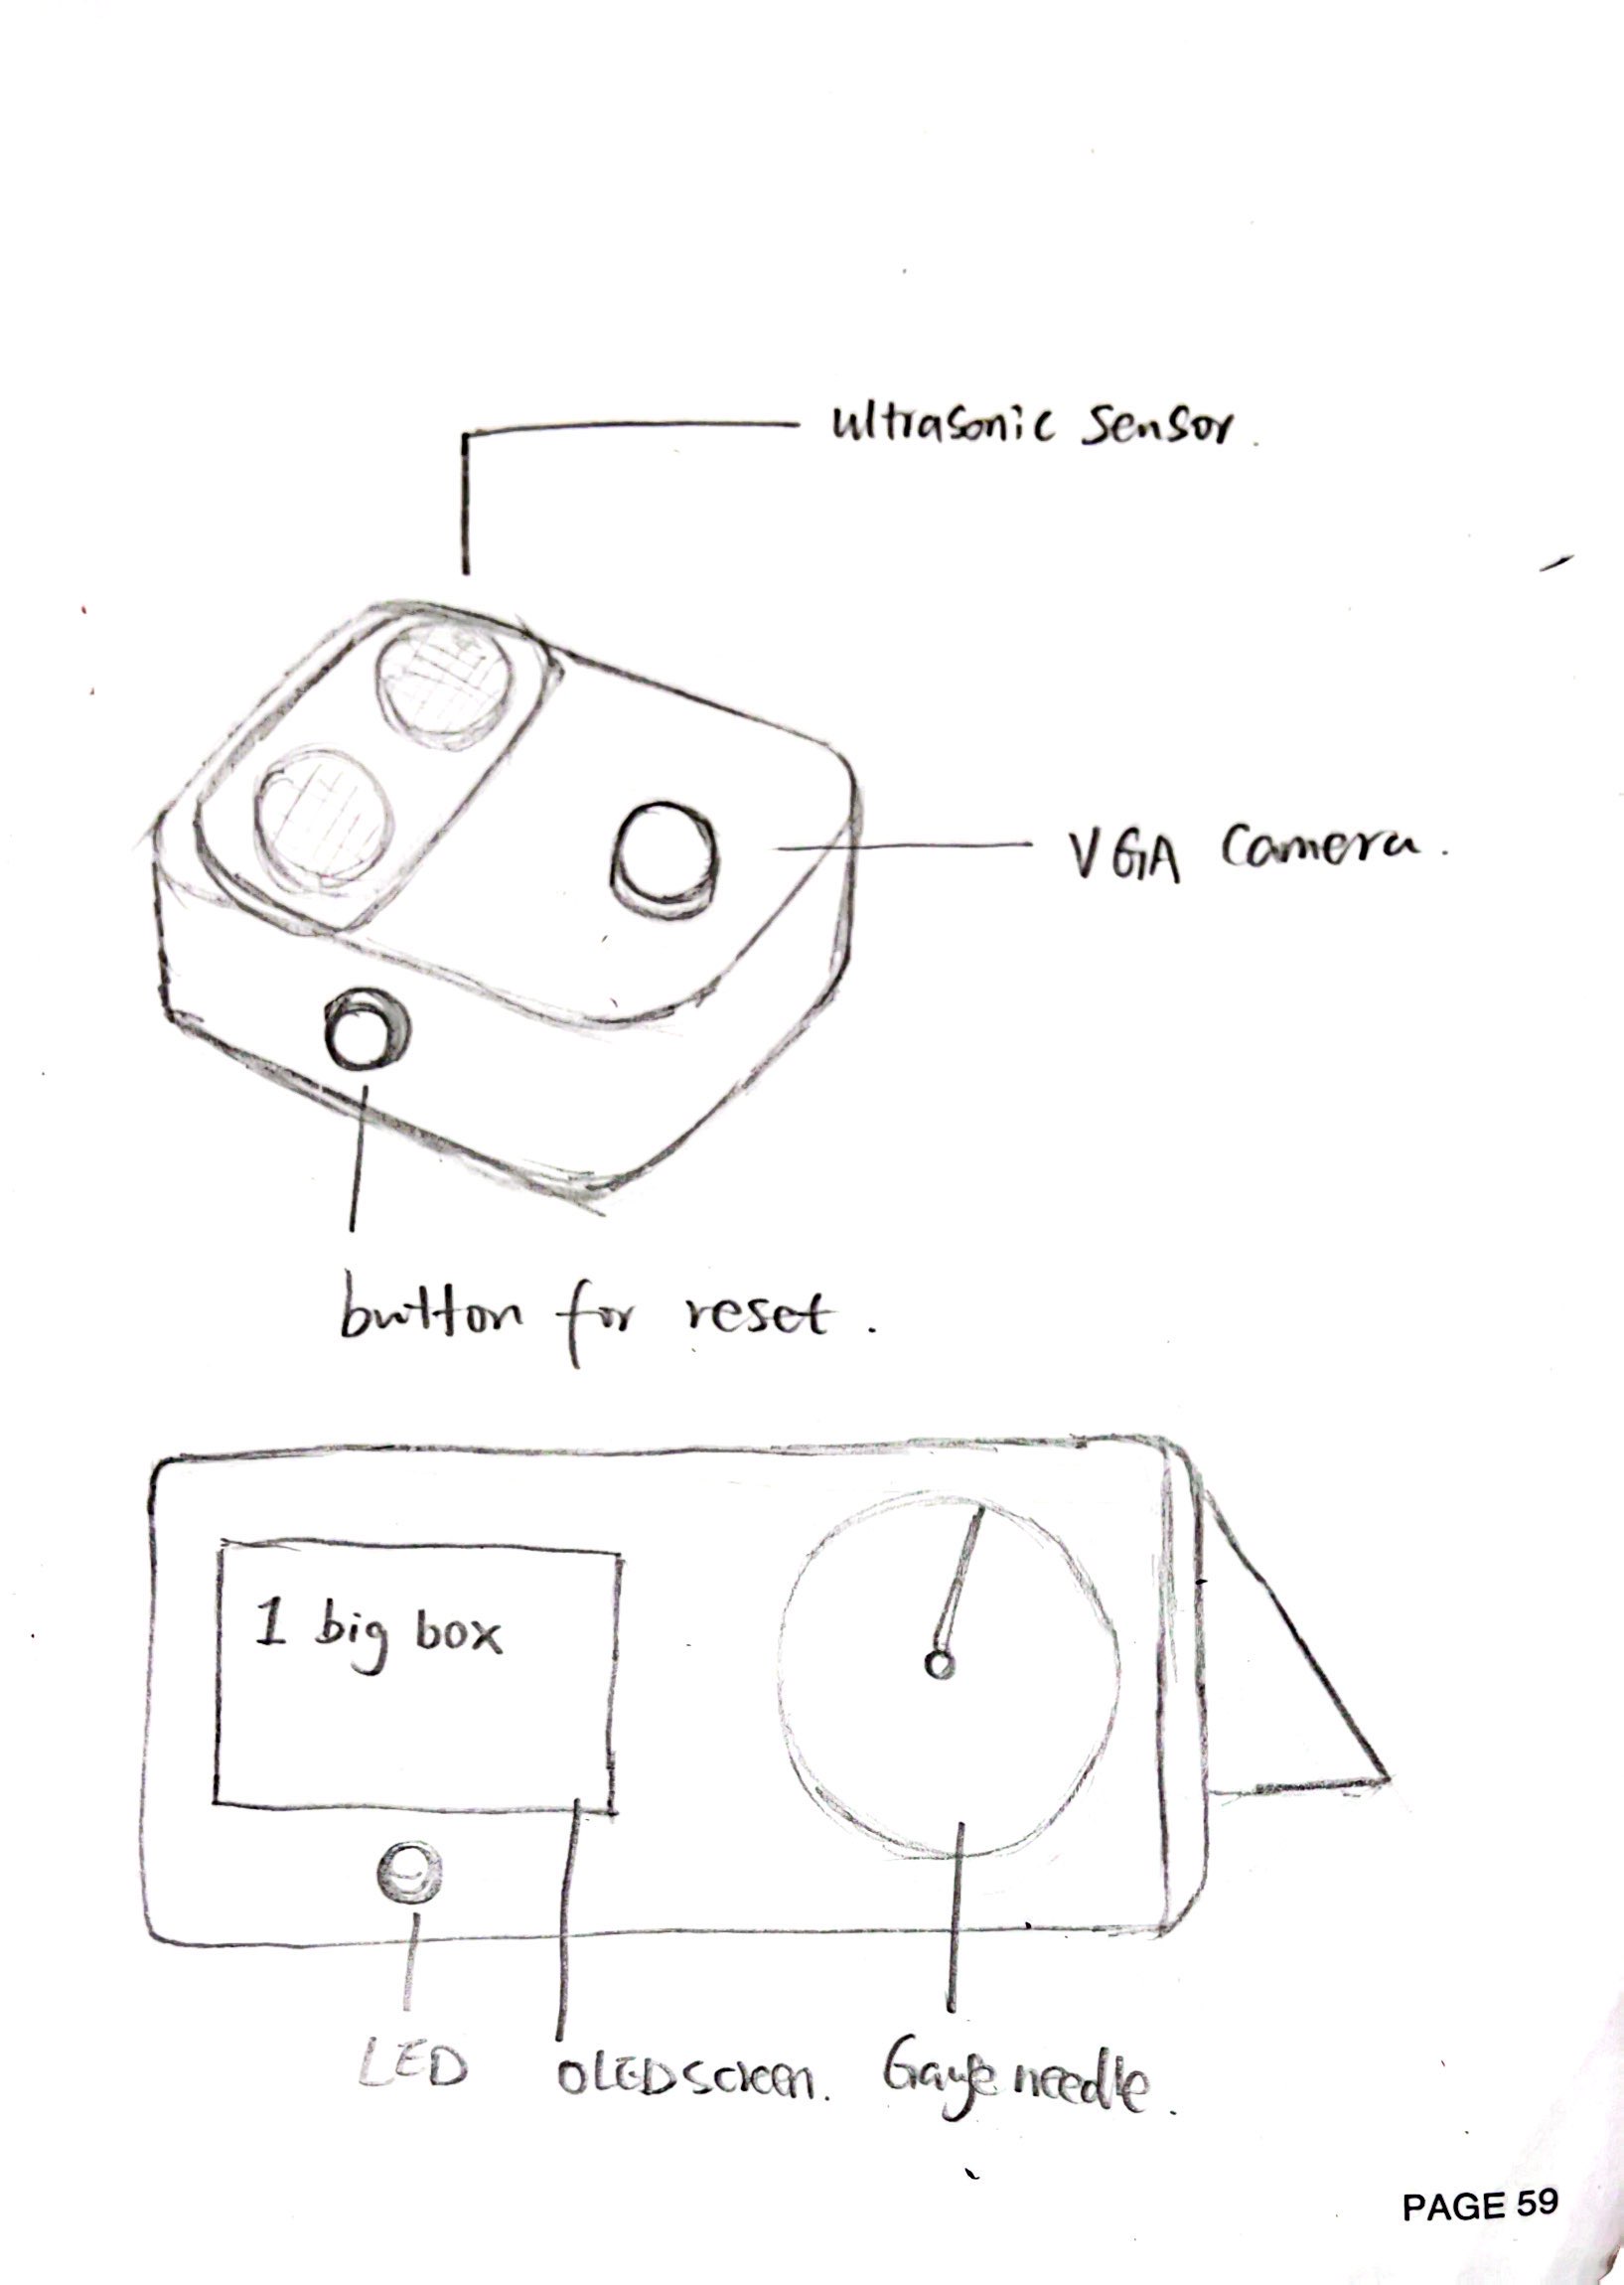 ultrasonic sensor.
VGA Camera.
button for reset.
1 big box
LED
OLED screen.
Gauge needle.
PAGE 59